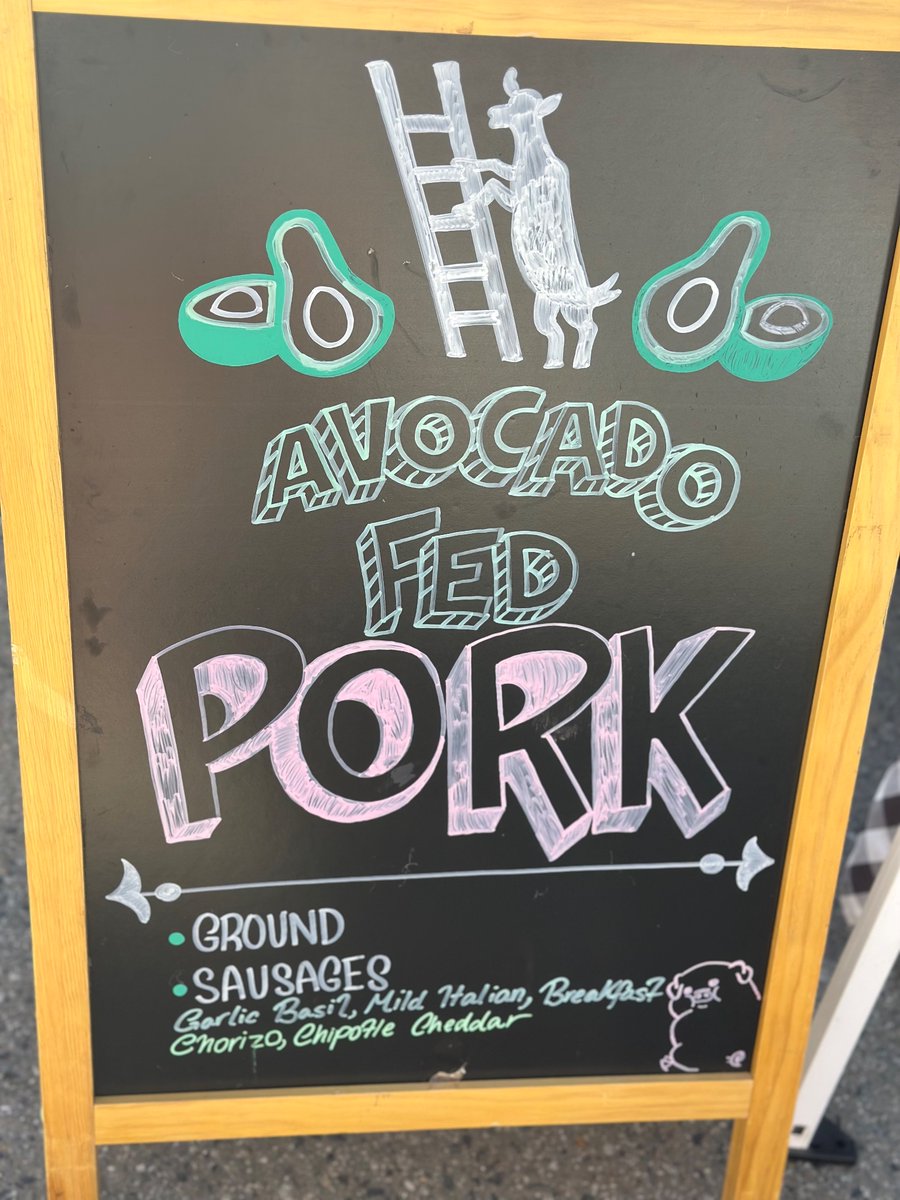 AVOCADO
FED
PORK
• GROUND
• SAUSAGES
Garlic Basil, Mild Italian, Breakfast
Chorizo, Chipotle Cheddar